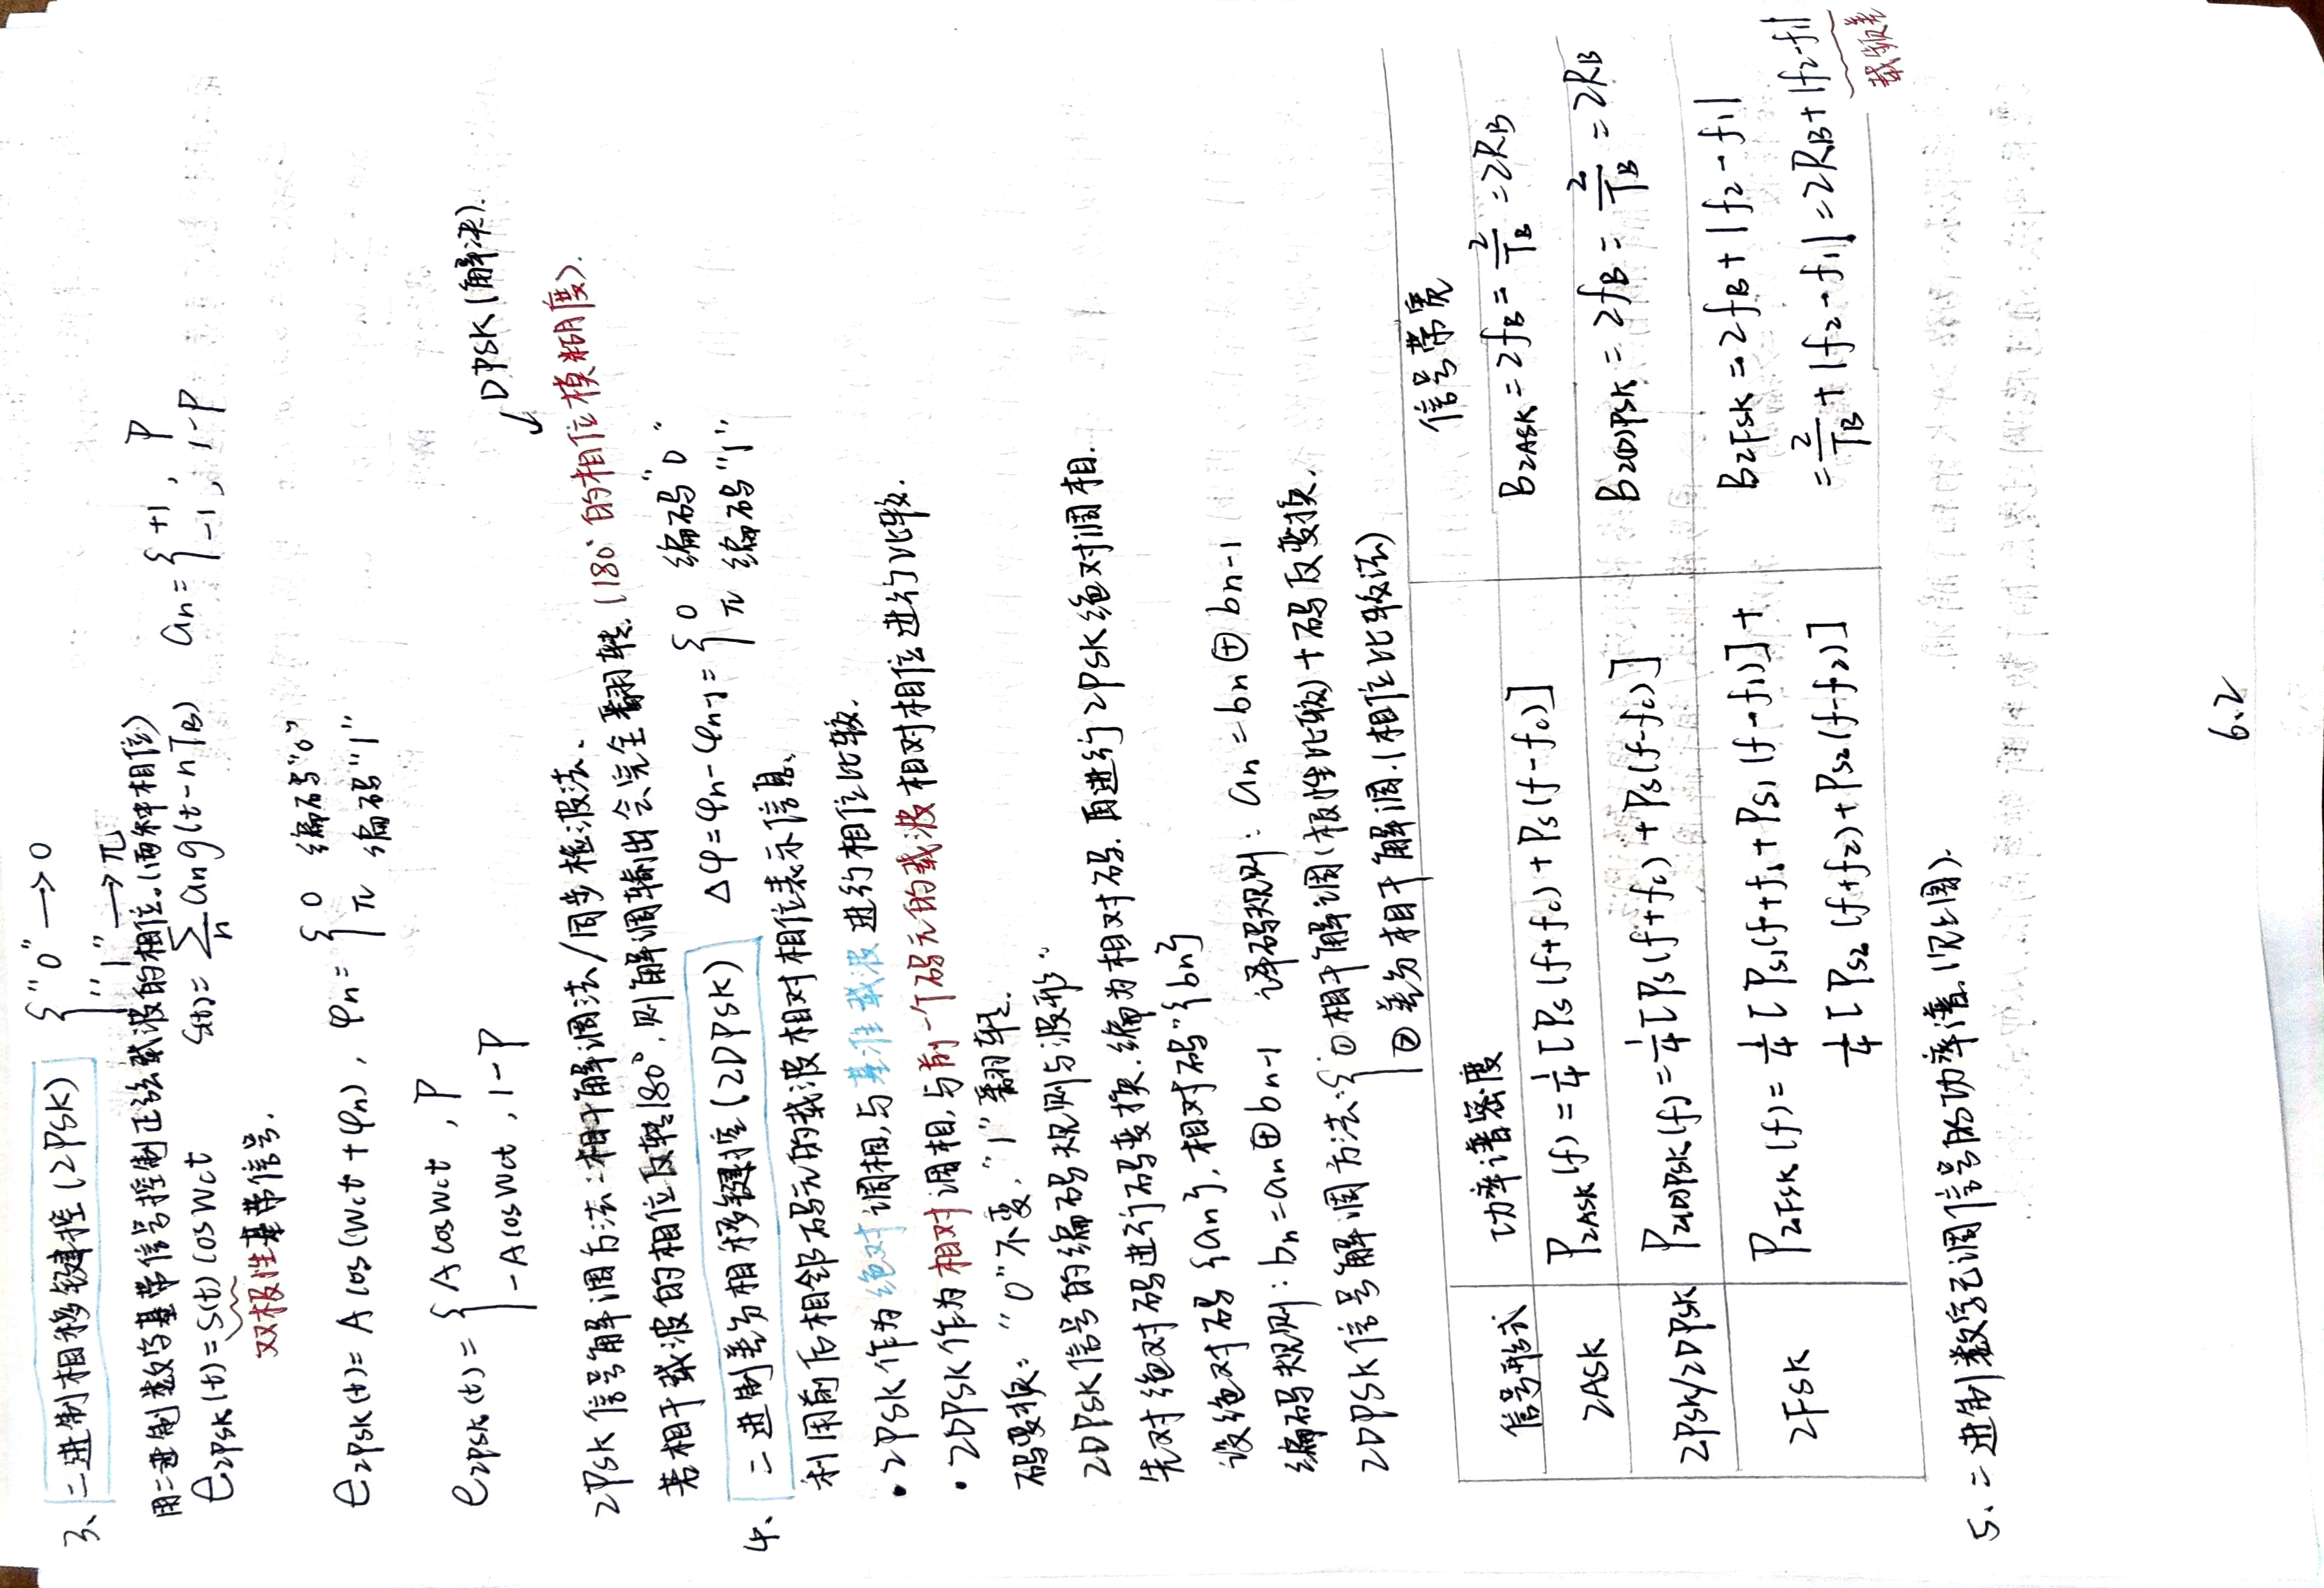 3、二进制相移键控(2PSK) { "0" → 0
"1" → π
用二进制数字基带信号控制正弦载波的相位。(两种相位)
e2PSK(t) = s(t) cos Wct   s(t) = Σn an g(t-nTB)   an = { +1, P
-1, 1-P
双极性基带信号.
e2PSK(t) = A cos(Wct + φn), φn = { 0 编码"0"
π 编码"1"
e2PSK(t) = { A cos Wct, P
-A cos Wct, 1-P
↙DPSK(解决).
2PSK信号解调方法:相干解调法/同步检波法.
若相干载波的相位反转180°,则解调输出会完全翻转.(180°的相位模糊度).
4、二进制差分相移键控(2DPSK)   Δφ = φn - φn-1 = { 0 编码"0"
π 编码"1"
利用前后相邻码元的载波相对相位表示信息.
• 2PSK作为绝对调相,与基准载波进行相位比较.
• 2DPSK作为相对调相,与前一个码元的载波相对相位进行比较.
码变换: "0"不变,"1"翻转.
2DPSK信号的编码规则与波形.
先对绝对码进行码变换.编为相对码.再进行2PSK绝对调相.
设绝对码{an},相对码{bn}
编码规则: bn = an ⊕ bn-1   译码规则: an = bn ⊕ bn-1
2DPSK信号解调方法: { ①相干解调(极性比较)+码反变换.
②差分相干解调.(相位比较法)
信号形式 功率谱密度 信号带宽
2ASK P2ASK(f) = 1/4 [Ps(f+fc) + Ps(f-fc)] B2ASK = 2fB = 2/TB = 2RB
2PSK/2DPSK P2(D)PSK(f) = 1/4 [Ps(f+fc) + Ps(f-fc)] B2(D)PSK = 2fB = 2/TB = 2RB
2FSK P2FSK(f) = 1/4 [Ps1(f+f1 + Ps1(f-f1)] + B2FSK = 2fB + |f2-f1|
1/4 [Ps2(f+f2) + Ps2(f-f2)] = 2/TB + |f2-f1| = 2RB + |f2-f1|
载频差
5、二进制数字已调信号的功率谱.(见上图).
6.2